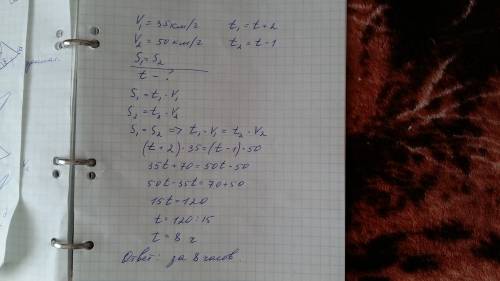 V₁ = 35 км/г t₁ = t+2
V₂ = 50 км/г t₂ = t-1
S₁ = S₂
t - ?
S₁ = t₁ · V₁
S₂ = t₂ · V₂
S₁ = S₂ => t₁ · V₁ = t₂ · V₂
(t+2)·35=(t-1)·50
35t+70=50t-50
50t-35t=70+50
15t=120
t=120:15
t=8 ч
Ответ: за 8 часов.